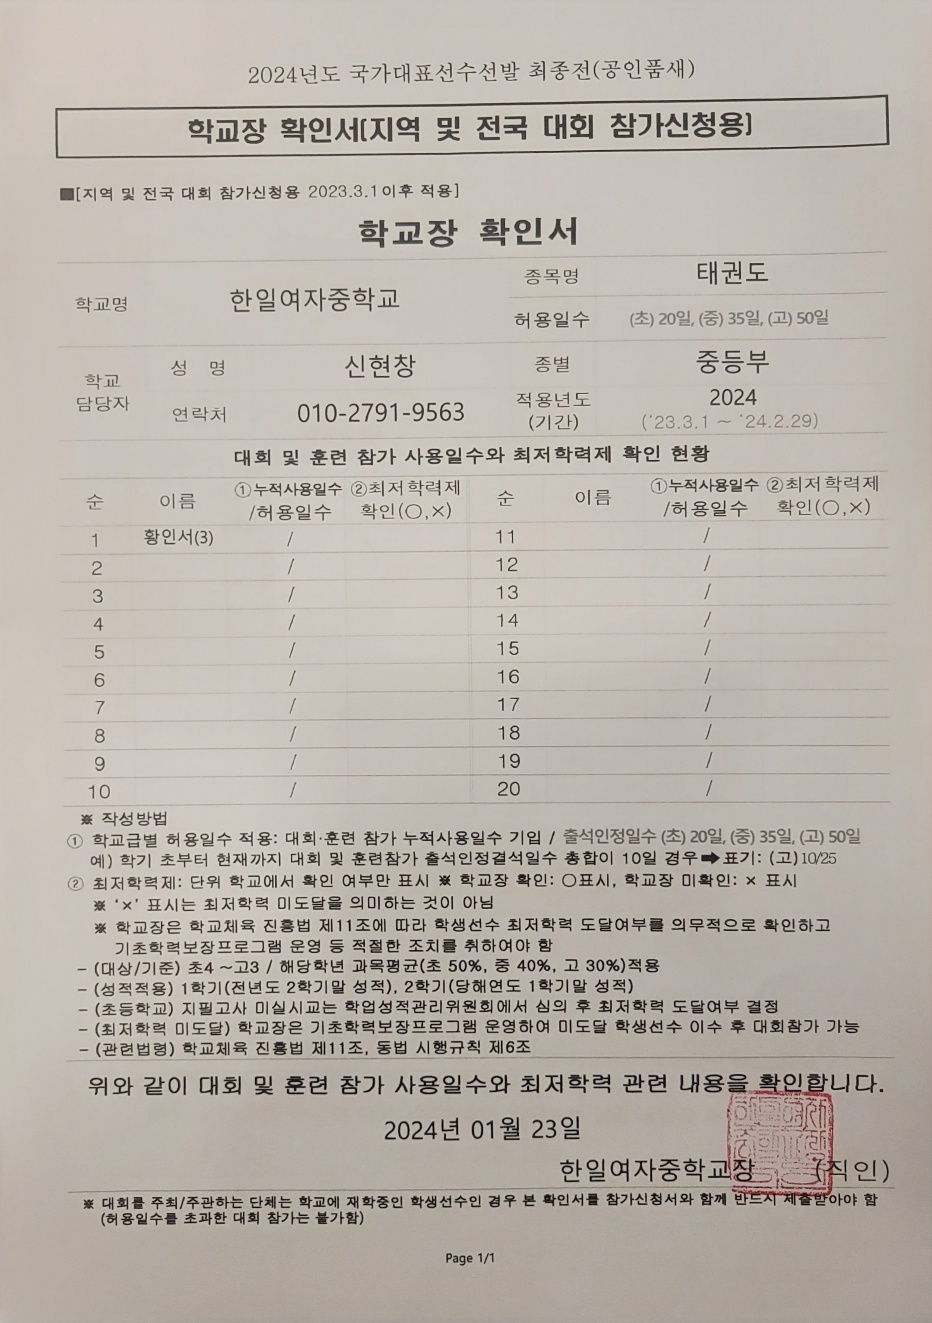 2024년도 국가대표선수선발 최종전(공인품새)
학교장 확인서(지역 및 전국 대회 참가신청용)
■[지역 및 전국 대회 참가신청용 2023.3.1이후 적용]
학교장 확인서
학교명 한일여자중학교 종목명 태권도
허용일수 (초) 20일, (중) 35일, (고) 50일
학교 담당자 성 명 신현창 종별 중등부
연락처 010-2791-9563 적용년도 (기간) 2024 (‘23.3.1 ~ ‘24.2.29)
대회 및 훈련 참가 사용일수와 최저학력제 확인 현황
순 이름 ①누적사용일수 /허용일수 ②최저학력제 확인(○,×) 순 이름 ①누적사용일수 /허용일수 ②최저학력제 확인(○,×)
1 황인서(3) / 11 /
2 / 12 /
3 / 13 /
4 / 14 /
5 / 15 /
6 / 16 /
7 / 17 /
8 / 18 /
9 / 19 /
10 / 20 /
※ 작성방법
① 학교급별 허용일수 적용: 대회·훈련 참가 누적사용일수 기입 / 출석인정일수 (초) 20일, (중) 35일, (고) 50일
예) 학기 초부터 현재까지 대회 및 훈련참가 출석인정결석일수 총합이 10일 경우➡표기: (고)10/25
② 최저학력제: 단위 학교에서 확인 여부만 표시 ※ 학교장 확인: ○표시, 학교장 미확인: × 표시
※ ‘×’ 표시는 최저학력 미도달을 의미하는 것이 아님
※ 학교장은 학교체육 진흥법 제11조에 따라 학생선수 최저학력 도달여부를 의무적으로 확인하고
기초학력보장프로그램 운영 등 적절한 조치를 취하여야 함
- (대상/기준) 초4 ~고3 / 해당학년 과목평균(초 50%, 중 40%, 고 30%)적용
- (성적적용) 1학기(전년도 2학기말 성적), 2학기(당해연도 1학기말 성적)
- (초등학교) 지필고사 미실시교는 학업성적관리위원회에서 심의 후 최저학력 도달여부 결정
- (최저학력 미도달) 학교장은 기초학력보장프로그램 운영하여 미도달 학생선수 이수 후 대회참가 가능
- (관련법령) 학교체육 진흥법 제11조, 동법 시행규칙 제6조
위와 같이 대회 및 훈련 참가 사용일수와 최저학력 관련 내용을 확인합니다.
2024년 01월 23일
한일여자중학교장 (직인)
※ 대회를 주최/주관하는 단체는 학교에 재학중인 학생선수인 경우 본 확인서를 참가신청서와 함께 반드시 제출받아야 함
(허용일수를 초과한 대회 참가는 불가함)
Page 1/1